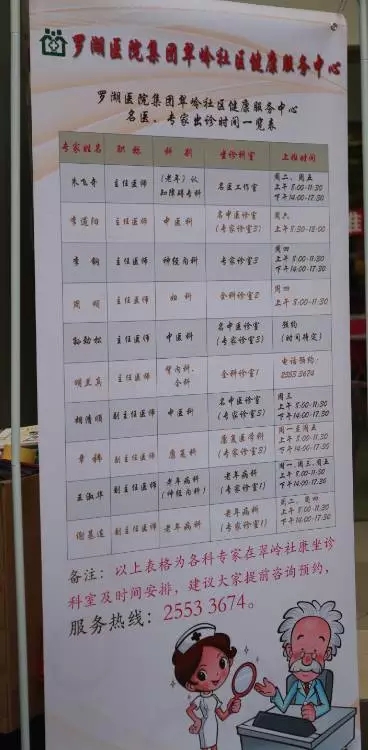 罗湖医院集团翠岭社区健康服务中心
罗湖医院集团翠岭社区健康服务中心
名医、专家出诊时间一览表
专家姓名 职称 科别 坐诊科室 上班时间
朱飞奇 主任医师 (老年)认知障碍专科 名医工作室 周二、周五 上午8:00-11:30 下午14:00-17:30
李道阳 主任医师 中医科 名中医诊室(专家诊室3) 周六 上午8:30-12:00
李钢 主任医师 神经内科 专家诊室3 周四 上午8:00-11:30 下午14:00-17:30
周明 主任医师 妇科 全科诊室2 周四 上午8:00-11:30
孙劲松 主任医师 中医科 名中医诊室(专家诊室3) 预约(时间待定)
主任医师 肾内科、全科 全科诊室1 电话预约:2553 3674
胡清顺 副主任医师 中医科 名中医诊室(专家诊室3) 周三 上午8:00-11:30 下午14:00-17:30
章稀 副主任医师 康复科 康复医学科(专家诊室3) 周一至周五 上午8:00-11:30 下午14:00-17:30
王淑华 副主任医师 老年病科(神经内科) 老年病科(专家诊室1) 周一、周三、周五 下午14:00-17:30
谢基连 副主任医师 老年病科 老年病科(专家诊室1) 周二、周四 上午8:00-11:30 下午14:00-17:30
备注:以上表格为各科专家在翠岭社康坐诊
科室及时间安排,建议大家提前咨询预约,
服务热线:2553 3674。